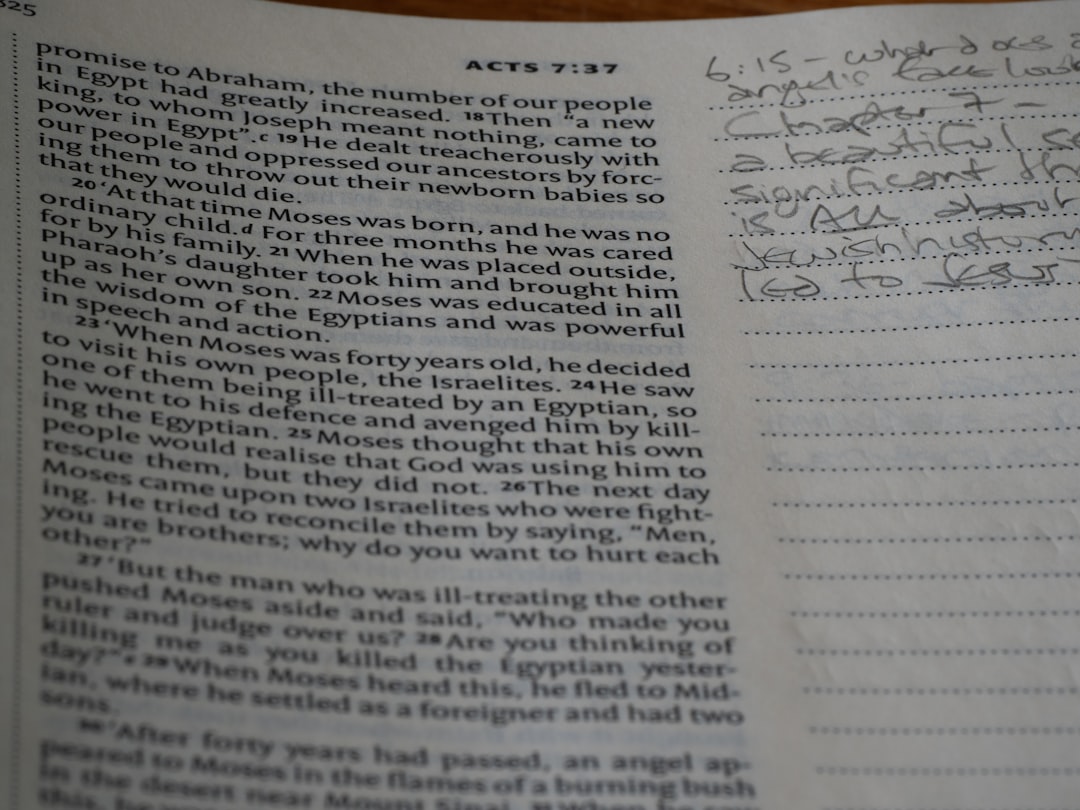 325
ACTS 7:37
promise to Abraham, the number of our people
in Egypt had greatly increased. 18 Then “a new
king, to whom Joseph meant nothing, came to
power in Egypt”.c 19 He dealt treacherously with
our people and oppressed our ancestors by forc-
ing them to throw out their newborn babies so
that they would die.
20 ‘At that time Moses was born, and he was no
ordinary child.d For three months he was cared
for by his family. 21 When he was placed outside,
Pharaoh’s daughter took him and brought him
up as her own son. 22 Moses was educated in all
the wisdom of the Egyptians and was powerful
in speech and action.
23 ‘When Moses was forty years old, he decided
to visit his own people, the Israelites. 24 He saw
one of them being ill-treated by an Egyptian, so
he went to his defence and avenged him by kill-
ing the Egyptian. 25 Moses thought that his own
people would realise that God was using him to
rescue them, but they did not. 26 The next day
Moses came upon two Israelites who were fight-
ing. He tried to reconcile them by saying, “Men,
you are brothers; why do you want to hurt each
other?”
27 ‘But the man who was ill-treating the other
pushed Moses aside and said, “Who made you
ruler and judge over us? 28 Are you thinking of
killing me as you killed the Egyptian yester-
day?”e 29 When Moses heard this, he fled to Mid-
ian, where he settled as a foreigner and had two
sons.
30 ‘After forty years had passed, an angel ap-
peared to Moses in the flames of a burning bush
in the desert near Mount Sinai.
6:15 – what does a
angel's face look
Chapter 7 –
a beautiful
significant
is All about
Jewish history
led to Jesus